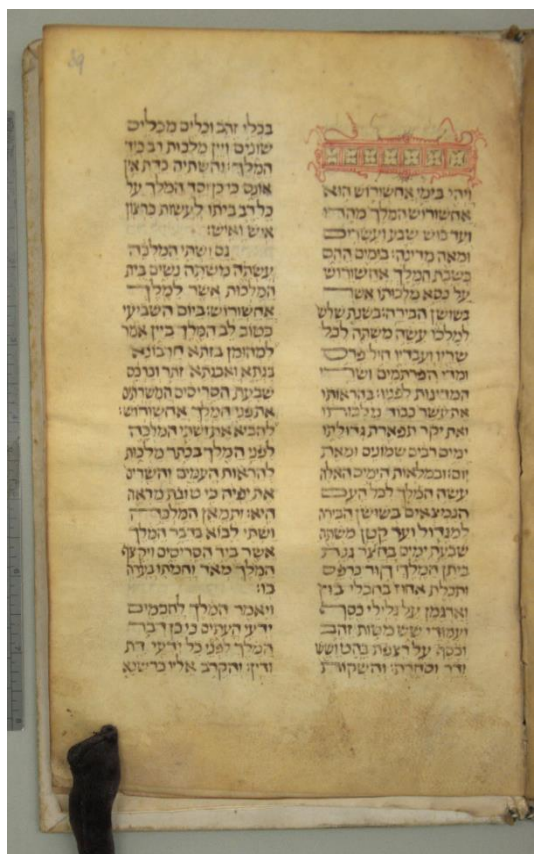 ויהי בימי אחשורוש הוא
אחשורוש המלך מהדו
ועד כוש שבע ועשרים
ומאה מדינה: בימים ההם
כשבת המלך אחשורוש
על כסא מלכותו אשר
בשושן הבירה: בשנת שלש
למלכו עשה משתה לכל
שריו ועבדיו חיל פרס
ומדי הפרתמים ושרי
המדינות לפניו: בהראותו
את עשר כבוד מלכותו
ואת יקר תפארת גדולתו
ימים רבים שמונים ומאת
יום: ובמלאות הימים האלה
עשה המלך לכל העם
הנמצאים בשושן הבירה
למגדול ועד קטן משתה
שבעת ימים בחצר גנת
ביתן המלך: חור כרפס
ותכלת אחוז בחבלי בוץ
וארגמן על גלילי כסף
ועמודי שש מטות זהב
וכסף על רצפת בהט ושש
ודר וסחרת: והשקות
בכלי זהב וכלים מכלים
שונים ויין מלכות רב כיד
המלך: והשתיה כדת אין
אונס כי כן יסד המלך על
כל רב ביתו לעשות כרצון
איש ואיש:
גם ושתי המלכה
עשתה משתה נשים בית
המלכות אשר למלך
אחשורוש: ביום השביעי
כטוב לב המלך ביין אמר
למהומן בזתא חרבונא
בגתא ואבגתא זתר וכרכס
שבעת הסריסים המשרתים
את פני המלך אחשורוש:
להביא את ושתי המלכה
לפני המלך בכתר מלכות
להראות העמים והשרים
את יפיה כי טובת מראה
היא: ותמאן המלכה
ושתי לבוא בדבר המלך
אשר ביד הסריסים ויקצף
המלך מאד וחמתו בערה
בו:
ויאמר המלך לחכמים
ידעי העתים כי כן דבר
המלך לפני כל ידעי דת
ודין: והקרב אליו כרשנא